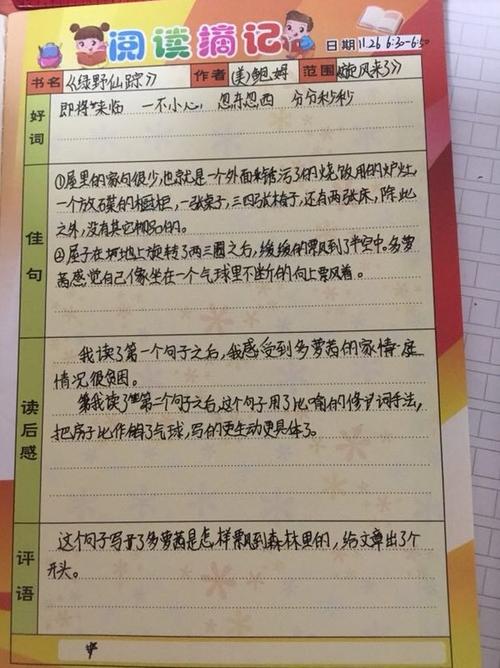 阅读摘记
日期 11.26 6:30-6:50
书名 《绿野仙踪》 作者 (美)鲍姆 范围 《旋风来了》
好词
即将来临 一不小心 忽东忽西 分分秒秒
佳句
①屋里的家句很少,也就是一个外面锈污了的烧饭用的炉灶,
一个放碟的橱柜,一张桌子,三四张椅子,还有两张床,除此
之外,没有其它物品的。
②屋子在地上旋转了两三圈之后,缓缓的飘到了半空中。多萝
茜感觉自己像坐在一个气球里不断的向上飘风着。
读后感
我读了第一个句子之后,我感受到多萝茜的家情庭
情况很贫困。
我读了第二个句子之后,这个句子用了比喻的修词手法,
把房子比作了气球,写的更生动更具体了。
评语
这个句子写了多萝茜是怎样飘到森林里的,给文章出了个
开头。